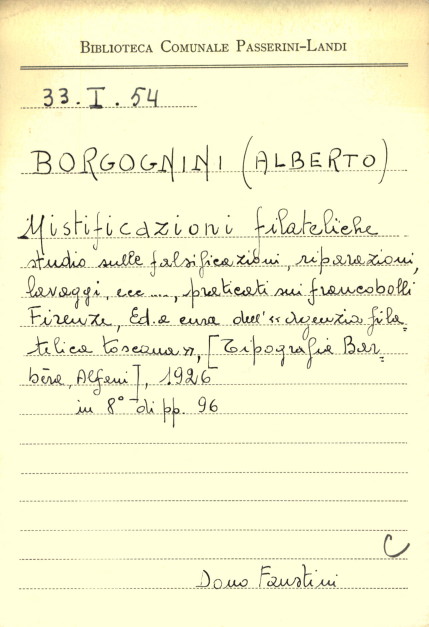 BIBLIOTECA COMUNALE PASSERINI-LANDI
33. I. 54
BORGOGNINI (ALBERTO)
Mistificazioni filateliche
studio sulle falsificazioni, riparazioni,
lavaggi, ecc ...., praticati sui francobolli
Firenze, Ed. a cura dell'"Agenzia fila=
telica toscana", [Tipografia Bar=
bèra, Alfani], 1926
in 8° di pp. 96
C
Dono Faustini